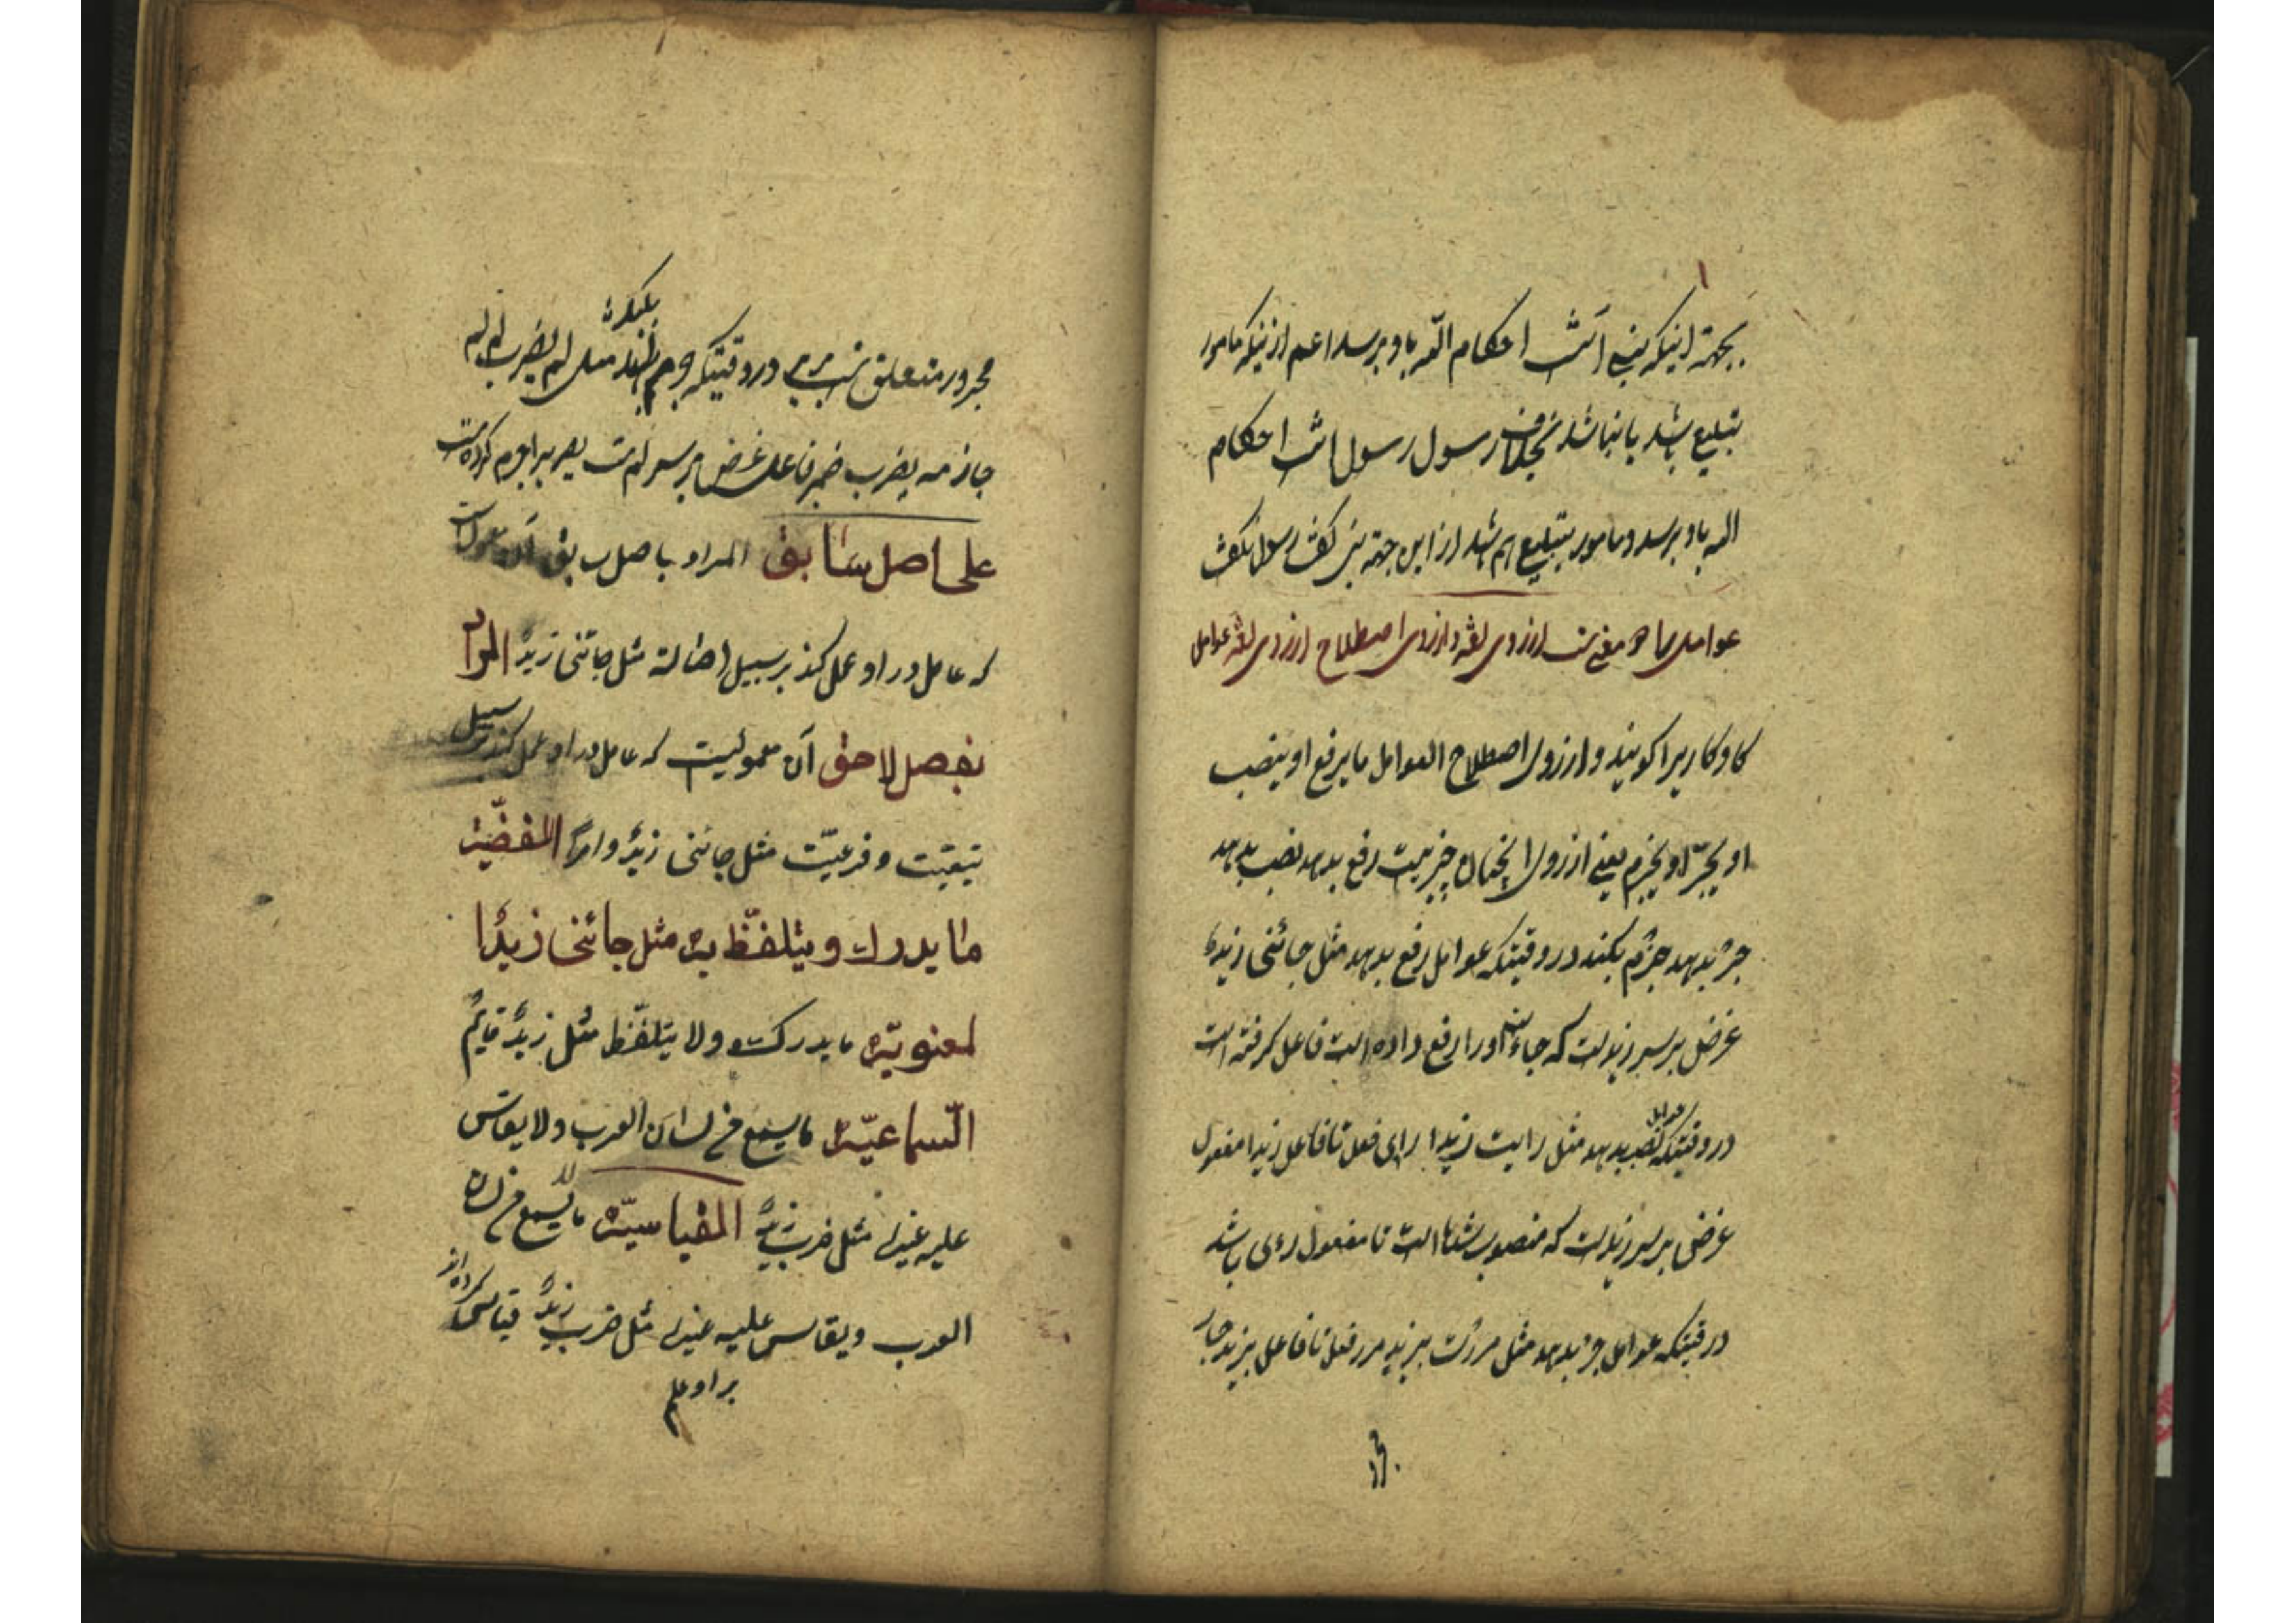 بجهة اینکه نبی آنست احکام الله باو برسد اعم از اینکه مامور
بتبلیغ باشد یا نباشد بخلاف رسول رسول آنست احکام
الله باو برسد و مامور بتبلیغ هم باشد از این جهة نبی کفت رسول نکفت
عوامل از روی لغة و از روی اصطلاح از روی لغة عوامل
کاو کاریرا کویند و از روی اصطلاح العوامل ما یرفع او ینصب
او یجرّ او یجزم یعنی از روی چیزیست رفع بدهد نصب بدهد
جرّ بدهد جزم بکند در وقتیکه عوامل رفع بدهد مثل جائنی زیدٌ
غرض بر سر زید است که جاء اورا رفع داده است فاعل کرفته است
در وقتیکه عوامل نصب بدهد مثل رایت زیدا رای فعل تا فاعل زیدا مفعول
غرض بر سر زید است که منصوب شده است تا مفعول رای باشد
در وقتیکه عوامل جرّ بدهد مثل مررت بزید مرر فعل تا فاعل بزید جار
مجرور متعلق در وقتیکه جزم بدهد مثل لم یضرب لم
جازمه یضرب فاعل غرض بر سر لم است یضرب را جزم کرده است
علی اصل سابق المراد باصل سابق آن معمول است
که عامل در او عمل کند بر سبیل اصالة مثل جائنی زیدٌ المراد
بفصل لاحق آن معمولیست که عامل در او عمل کند بر سبیل
تبعیّت و فرعیّت مثل جائنی زیدٌ اللفظیّة
ما یدرک و یتلفّظ به مثل جائنی زیدٌ
لمعنویّة ما یدرک و لا یتلفّظ مثل زیدٌ قایمٌ
السّماعیّة ما یسمع فی لسان العرب و لا یقاس
علیه غیره مثل ضرب زیدٌ القیاسیّة ما یسمع فی لسان
العرب و یقاس علیه غیره مثل ضرب زیدٌ قیاس کرده‌اند
بر او علم